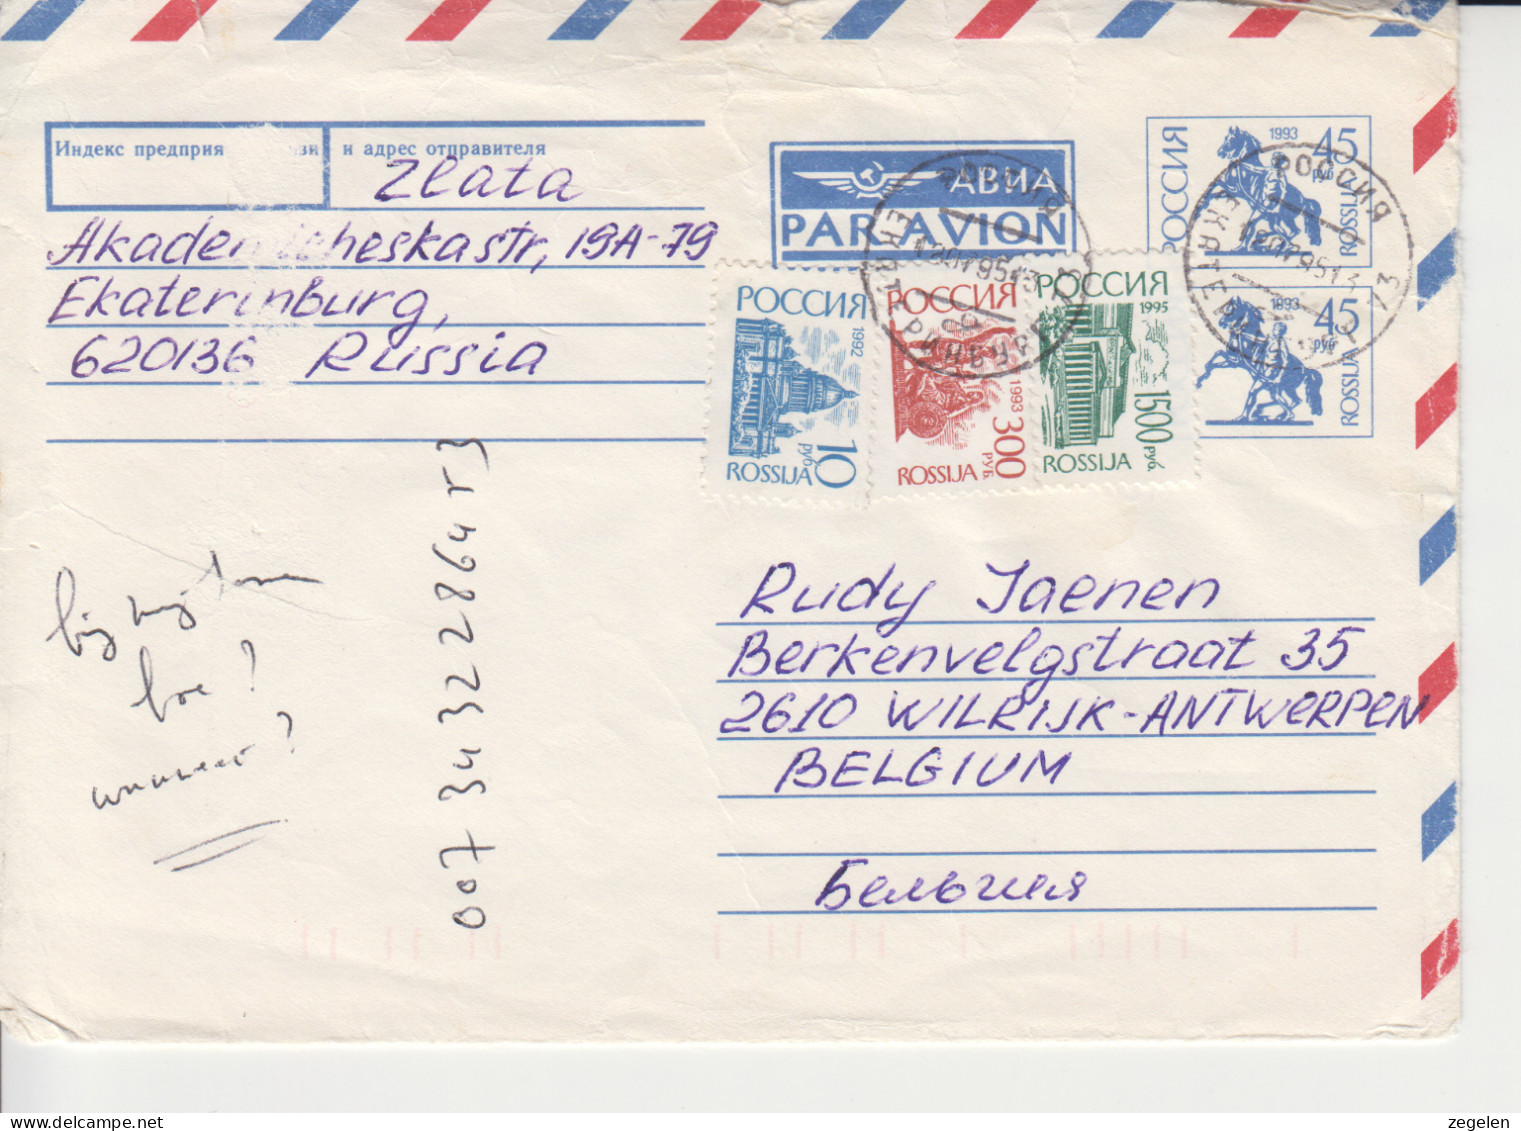 Индекс предприя зи и адрес отправителя
Zlata
Akademicheskastr, 19A-79
Ekaterinburg,
620136 Russia
АВИА
PAR AVION
РОССИЯ 1993 45 руб ROSSIJA
1993 45 руб ROSSIJA
РОССИЯ 1992 10 руб. ROSSIJA
РОССИЯ 1993 300 РУБ. ROSSIJA
РОССИЯ 1995 1500 РУБ. ROSSIJA
РОССИЯ
ЕКАТЕРИНБУРГ
007 34 32 2864 r3
bij mij
hoe?
wanneer?
Rudy Jaenen
Berkenvelgstraat 35
2610 WILRIJK-ANTWERPEN
BELGIUM
Бельгия
zegelen